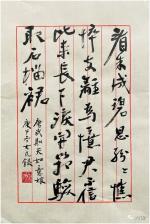 看朱成碧思紛々憔
悴支離為憶君不信
比来長下淚開箱驗
取石榴裙
唐武則天如意娘